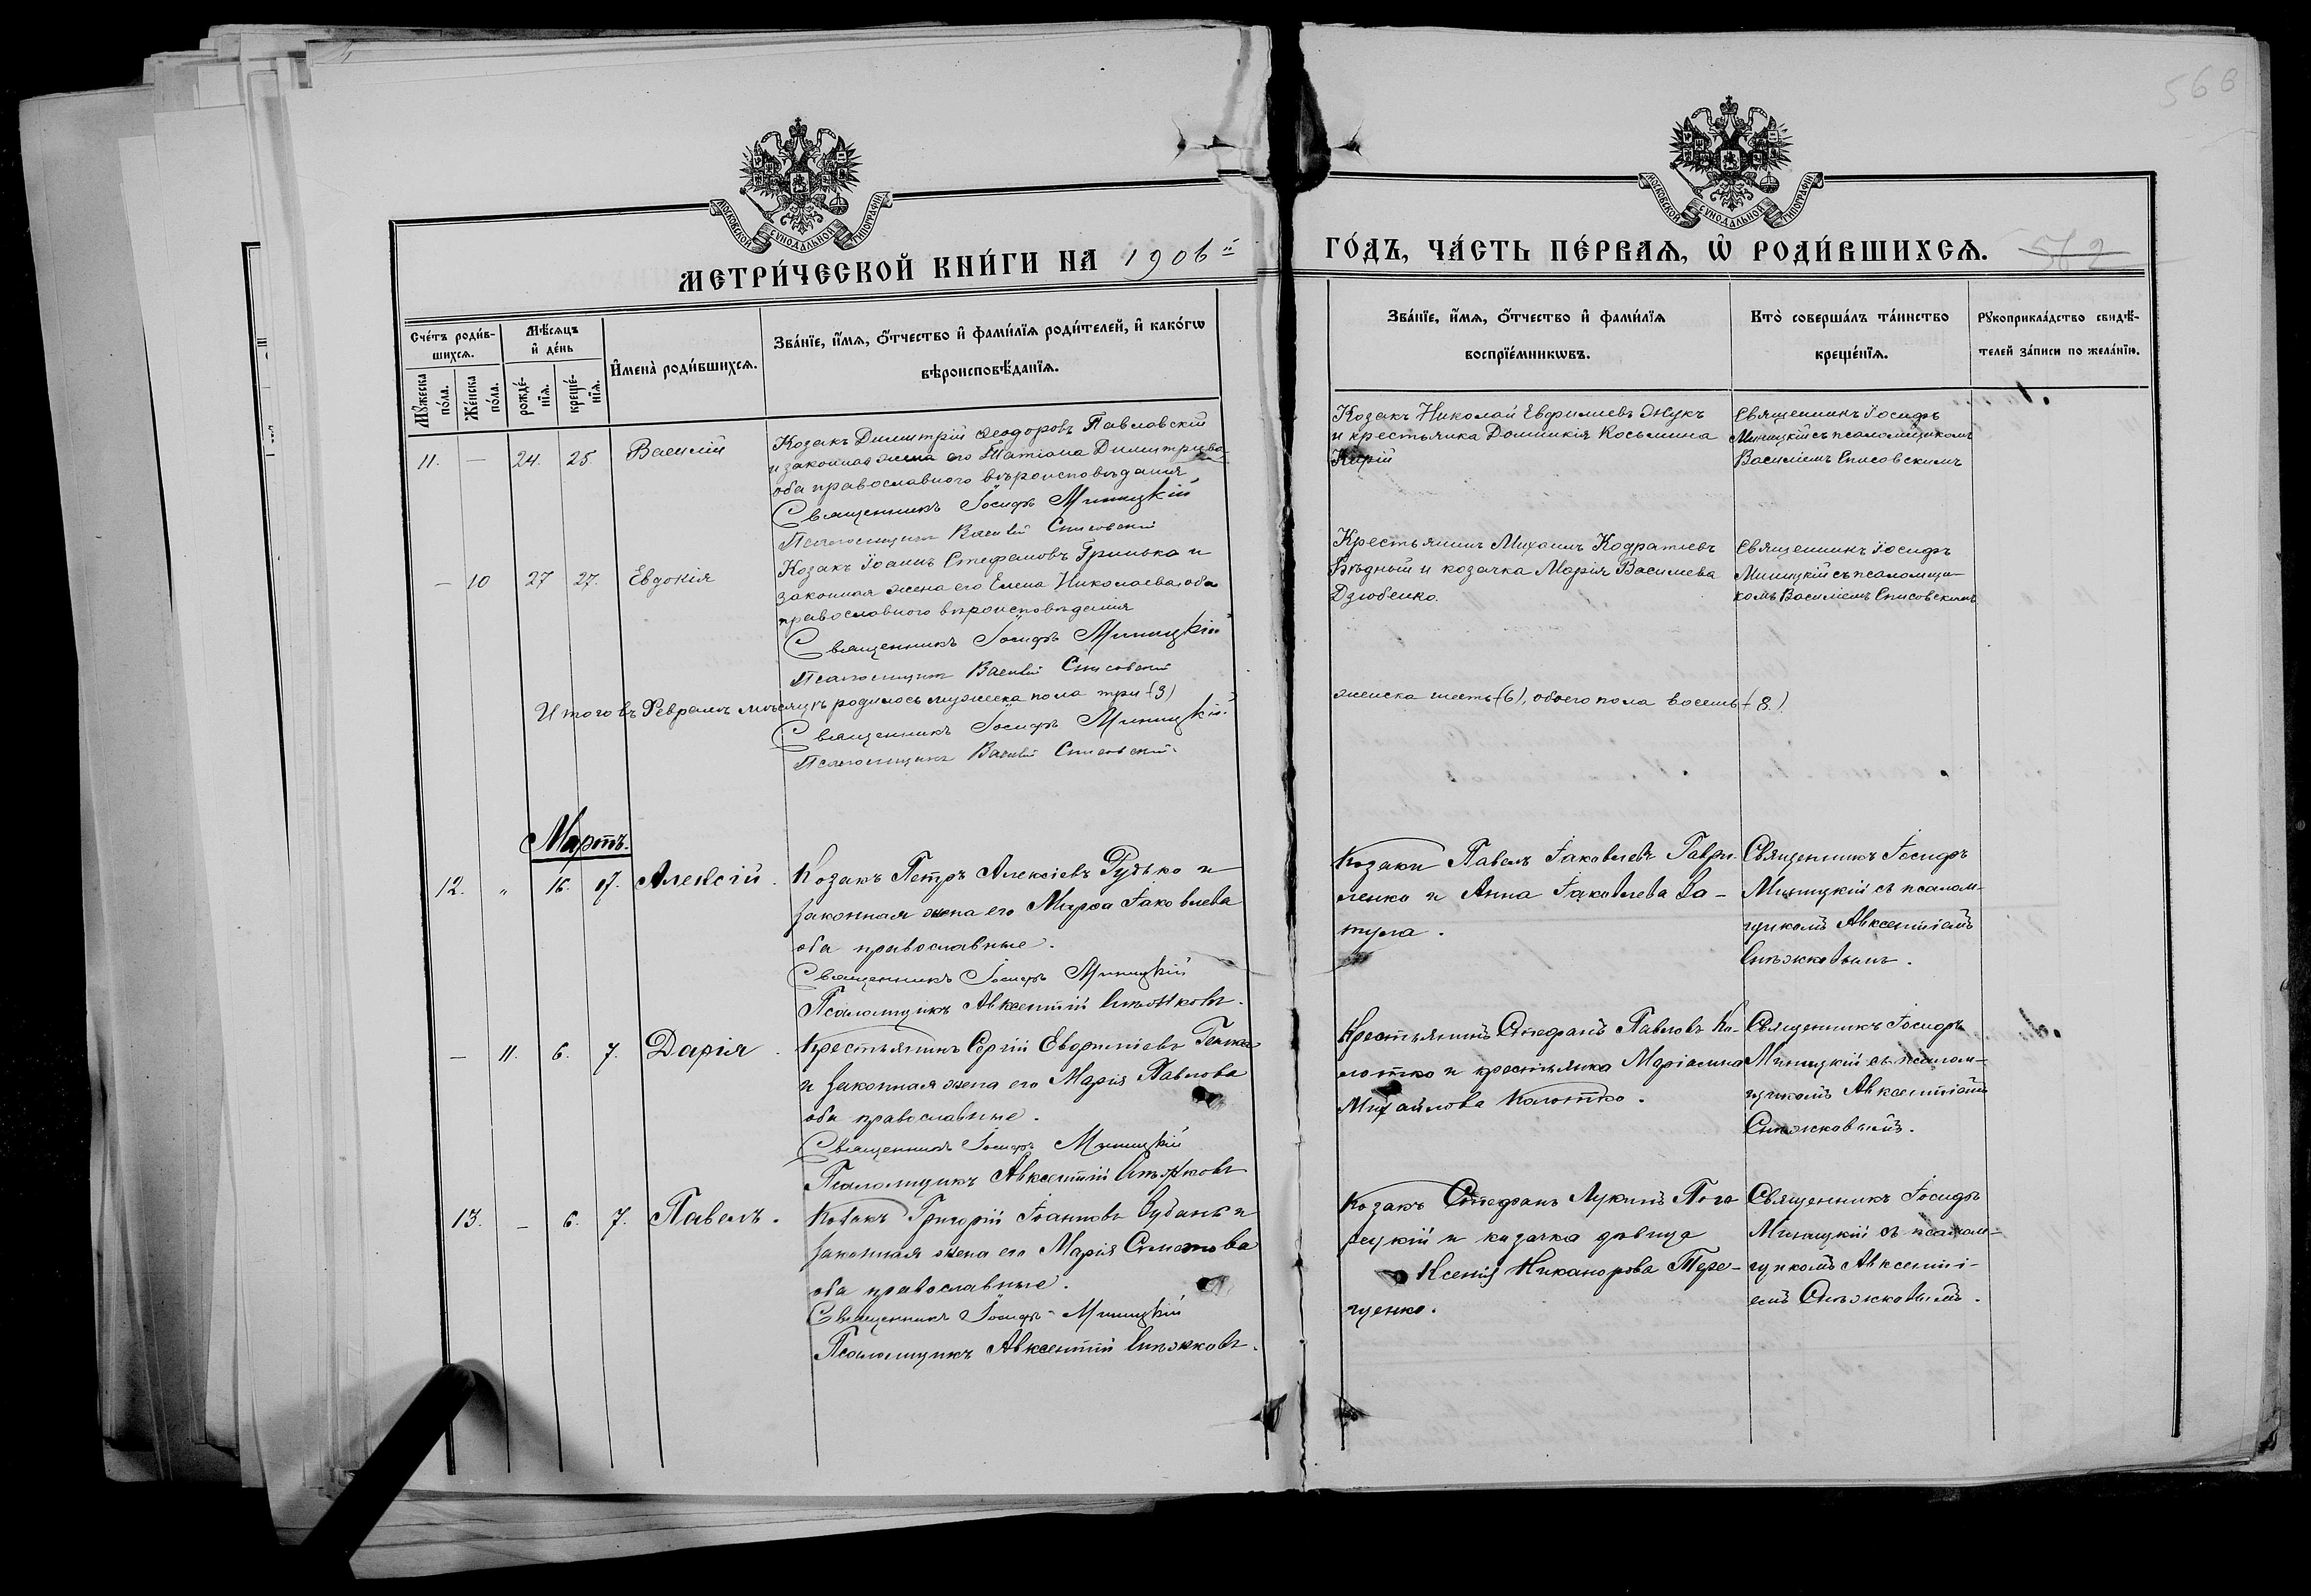 566
МОСКОВСКОЙ СУНОДАЛЬНОЙ ТИПОГРАФІИ
МОСКОВСКОЙ СУНОДАЛЬНОЙ ТИПОГРАФІИ
МЕТРИ́ЧЕСКОЙ КНИ́ГИ НА 1906й
ГО́ДЪ, ЧА́СТЬ ПЕ́РВАЯ, Ѡ҆ РОДИ́ВШИХСЯ. 562
Сче́тъ роди́в-
шихся.
Мѣ́сяцъ
и҆ де́нь
И҆мена̀ роди́вшихся.
Зва́нїе, и҆́мя, ѻ҆́тчество и҆ фами́лїя роди́телей, и҆ како́гѡ
вѣроисповѣ́данїя.
Мꙋ́жеска
по́ла.
Же́нска
по́ла.
рожде́-
нїя.
креще́-
нїя.
Зва́нїе, и҆́мя, ѻ҆́тчество и҆ фами́лїя
воспрїе́мникѡвъ.
Кто̀ соверша́лъ та́инство
креще́нїя.
Рꙋкоприкла́дство свидѣ́-
телей за́писи по жела́нїю.
11. — 24. 25. Василій
Козакъ Димитрій Ѳеодоровъ Павловскій
и законная жена его Татіана Димитріева
оба православного вѣроисповѣданія
Священникъ Іосифъ Миницкій
Псаломщикъ Василій Списовскій
Козакъ Николай Евфиміевъ Жукъ
и крестьянка Домникія Косьмина
Кирій
Священникъ Іосифъ
Миницкій съ псаломщикомъ
Василіемъ Списовскимъ
— 10 27 27. Евдокія
Козакъ Іоаннъ Стефановъ Гринька и
законная жена его Елена Николаева, оба
православного вѣроисповѣданія
Священникъ Іосифъ Миницкій
Псаломщикъ Василій Списовскій
Крестьянинъ Михаилъ Кодратіевъ
Бѣдный и козачка Марія Василіева
Дзюбенко.
Священникъ Іосифъ
Миницкій съ псаломщи-
комъ Василіемъ Списовскимъ
Итого въ Февралѣ мѣсяцѣ родилось мужеска пола три (3)
женска шесть (6), обоего пола восемь (8)
Священникъ Іосифъ Миницкій
Псаломщикъ Василій Списовскій.
Мартъ.
12. „ 16. 17. Алексій.
Козакъ Петръ Алексіевъ Рудько и
законная жена его Марѳа Іаковлева
оба православные.
Священникъ Іосифъ Миницкій
Псаломщикъ Авксентій Снѣжковъ.
Козаки Павелъ Іаковлевъ Гаври-
ленко и Анна Іаковлева Ва-
тула.
Священникъ Іосифъ
Миницкій съ псалом-
щикомъ Авксентіемъ
Снѣжковымъ.
— 11. 6. 7. Дарія.
Крестьянинъ Сергій Евфиміевъ
и законная жена его Марія Павлова
оба православные.
Священникъ Іосифъ Миницкій
Псаломщикъ Авксентій Снѣжковъ
Крестьянинъ Стефанъ Павловъ Ко-
лотко и крестьянка Маріамна
Михайлова Колотко.
Священникъ Іосифъ
Миницкій съ псалом-
щикомъ Авксентіемъ
Снѣжковымъ.
13. — 6. 7. Павелъ.
Козакъ Григорій Іоанновъ Зубань и
законная жена его Марія Симонова
оба православные.
Священникъ Іосифъ Миницкій
Псаломщикъ Авксентій Снѣжковъ.
Козакъ Стефанъ Лукинъ Пого-
рецкій и казачка дѣвица
Ксенія Никанорова Тере-
щенко.
Священникъ Іосифъ
Миницкій съ псалом-
щикомъ Авксенті-
емъ Снѣжковымъ.